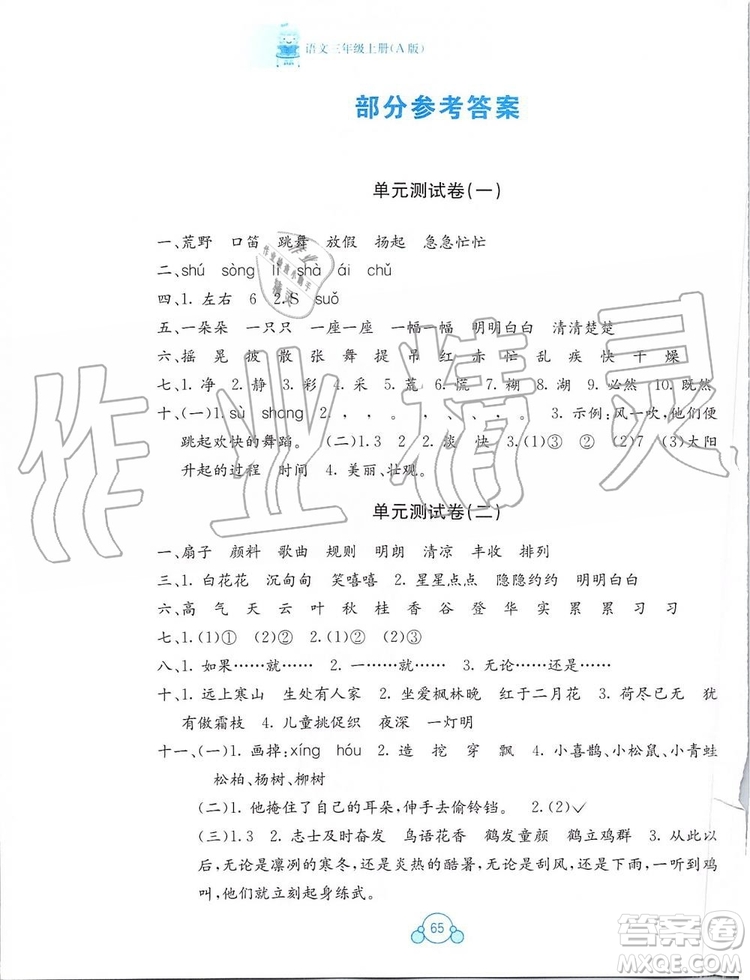 语文三年级上册(A版)
部分参考答案
单元测试卷(一)
一、荒野 口笛 跳舞 放假 扬起 急急忙忙
二、shú sòng lǐ shà ái chǔ
四、1. 左右 6 2. S suǒ
五、一朵朵 一只只 一座一座 一幅一幅 明明白白 清清楚楚
六、摇 晃 披 散 张 舞 提 吊 红 赤 忙 乱 疾 快 干 燥
七、1. 净 2. 静 3. 彩 4. 采 5. 荒 6. 慌 7. 糊 8. 湖 9. 必然 10. 既然
十、(一)1. sù shang 2. , , 。 , 、 , 。 3. 示例:风一吹,他们便
跳起欢快的舞蹈。 (二)1. 3 2. 淡 快 3. (1)③ ② (2)7 (3)太阳
升起的过程 时间 4. 美丽、壮观。
单元测试卷(二)
一、扇子 颜料 歌曲 规则 明朗 清凉 丰收 排列
三、1. 白花花 沉甸甸 笑嘻嘻 2. 星星点点 隐隐约约 明明白白
六、高 气 天 云 叶 秋 桂 香 谷 登 华 实 累 累 习 习
七、1. (1)① (2)② 2. (1)② (2)①
八、1. 如果……就…… 2. 一……就…… 3. 无论……还是……
十、1. 远上寒山 生处有人家 2. 坐爱枫林晚 红于二月花 3. 荷尽已无 犹
有傲霜枝 4. 儿童挑促织 夜深 一灯明
十一、(一)1. 画掉:xíng hóu 2. 造 挖 穿 飘 3. 小喜鹊、小松鼠、小青蛙
松柏、杨树、柳树
(二)1. 他掩住了自己的耳朵,伸手去偷铃铛。 2. (2)✓
(三)1. 3 2. 志士及时奋发 鸟语花香 鹤发童颜 鹤立鸡群 3. 从此以
后,无论是凛冽的寒冬,还是炎热的酷暑,无论是刮风,还是下雨,一听到鸡
叫,他们就立刻起身练武。
65
作业精灵
答案圈
MXQE.COM